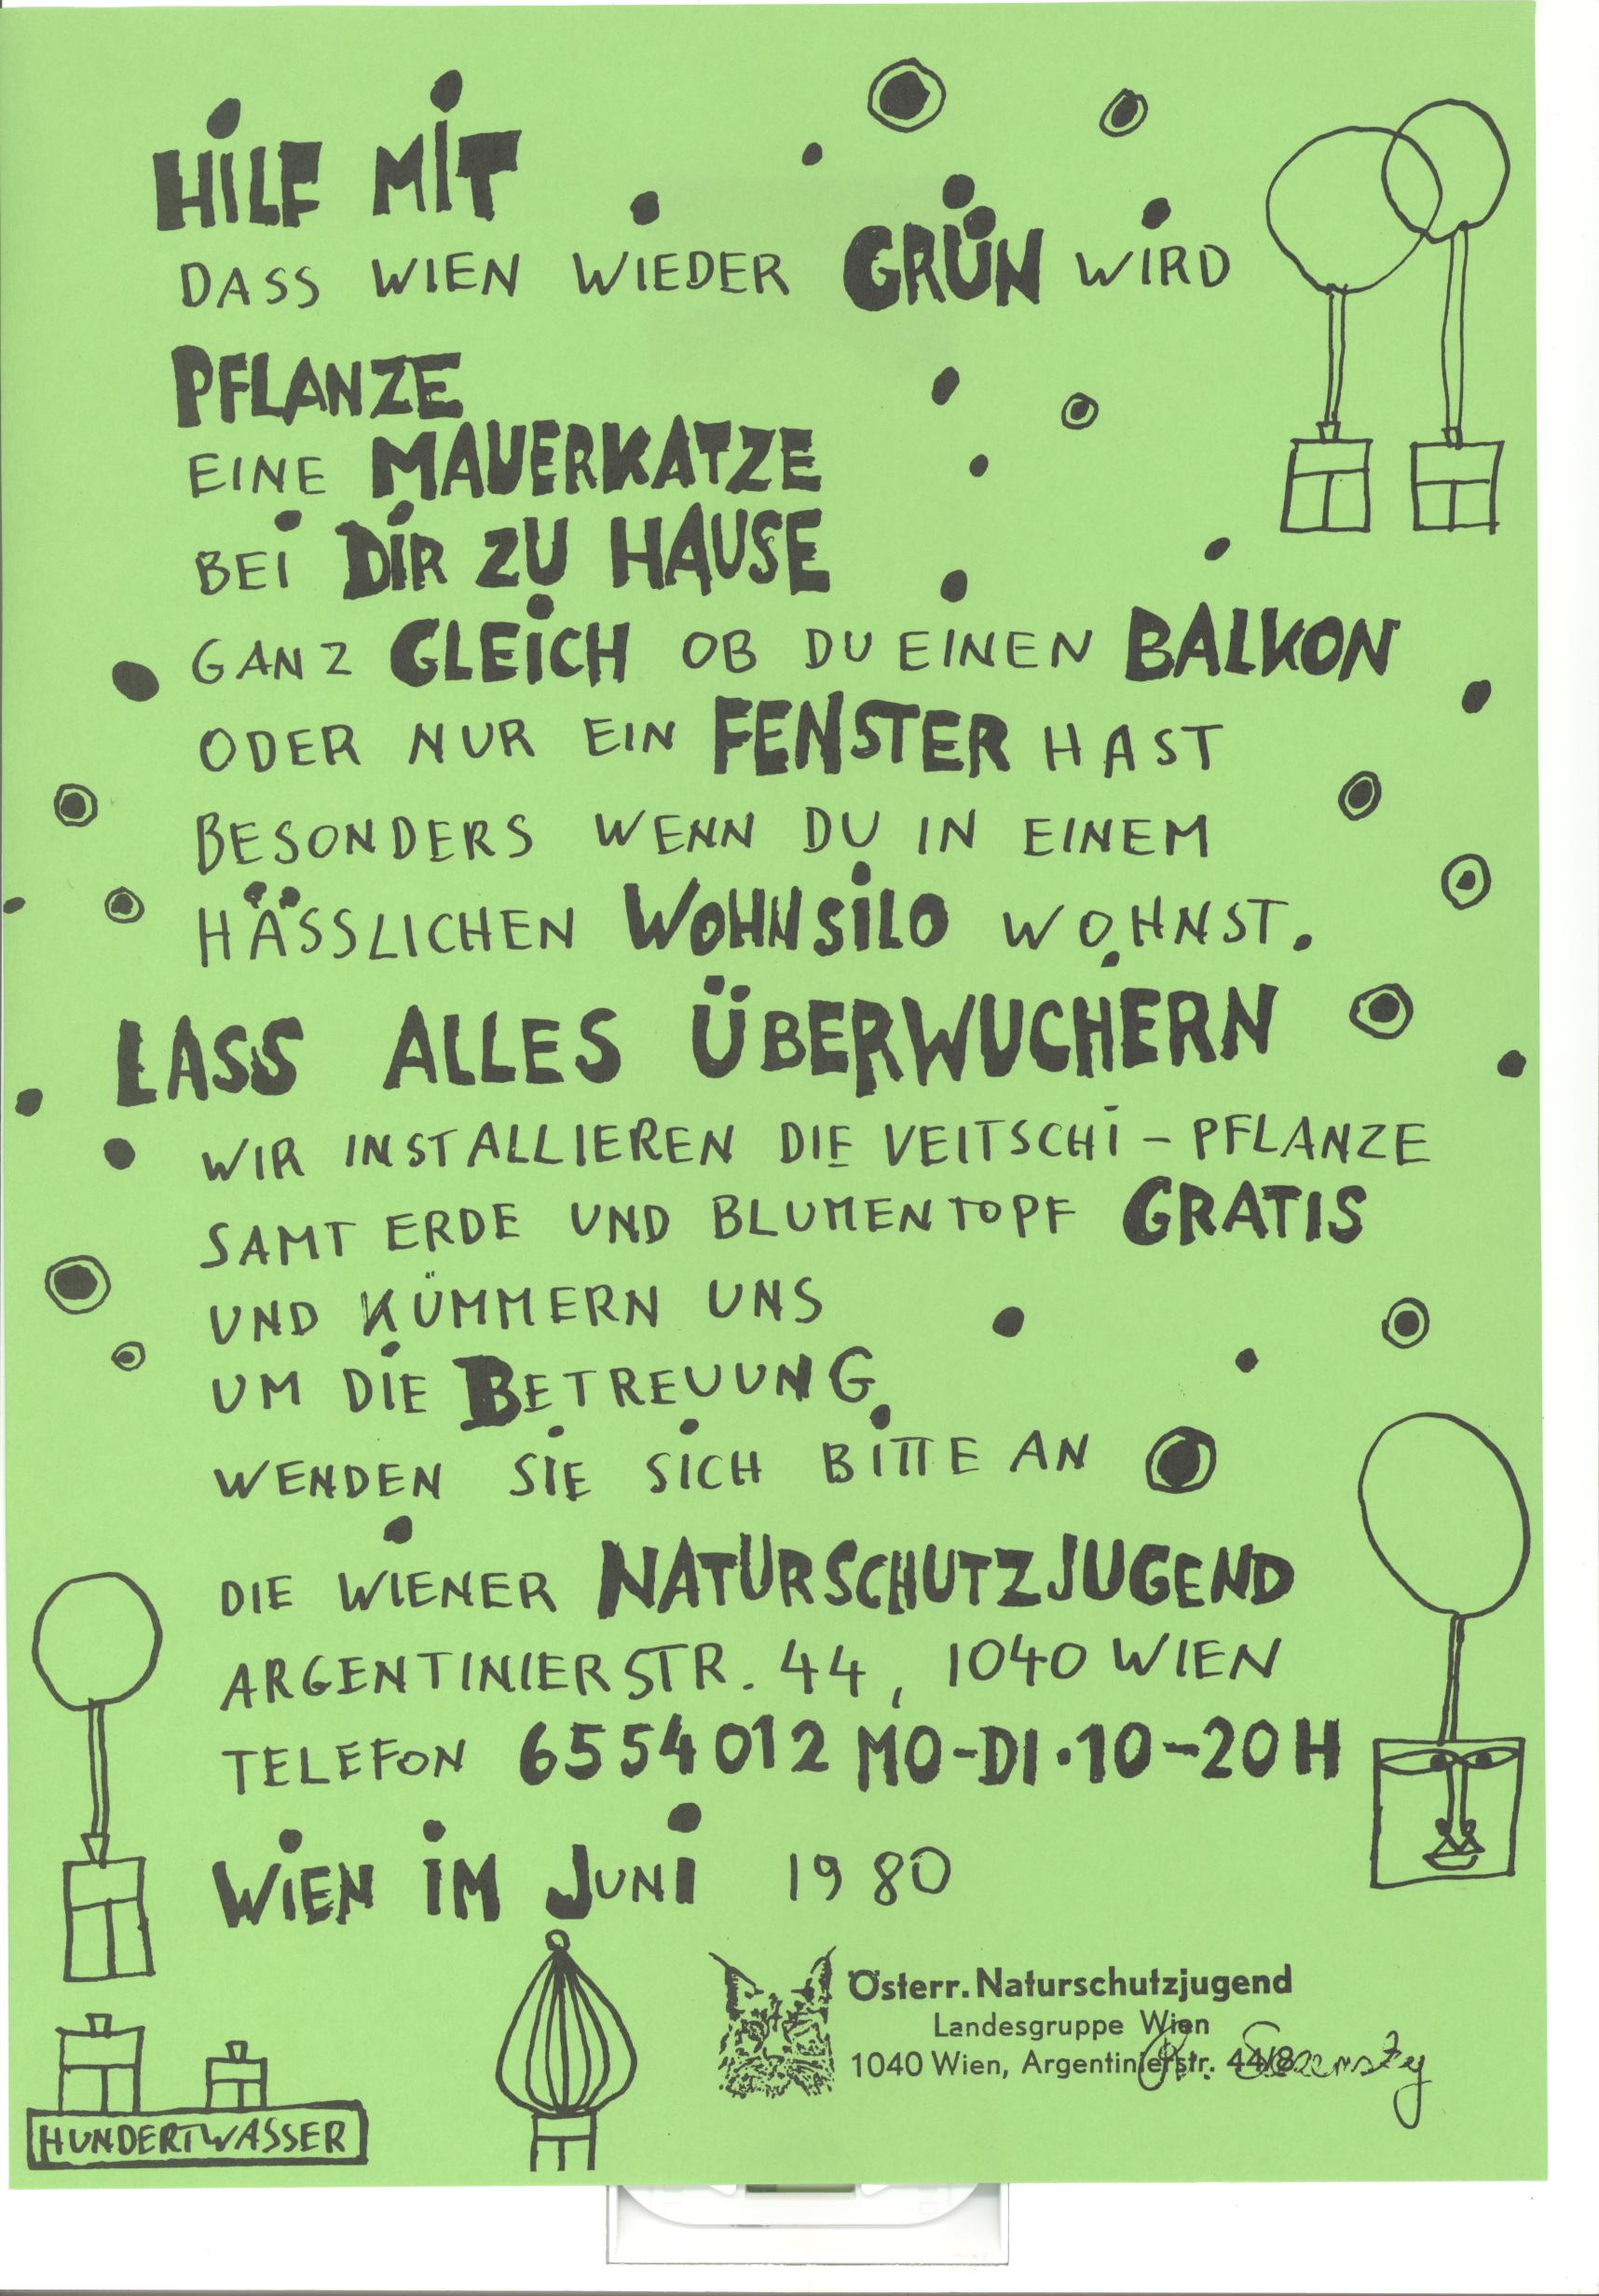 HILF MIT
DASS WIEN WIEDER GRÜN WIRD
PFLANZE
EINE MAUERKATZE
BEI DIR ZU HAUSE
GANZ GLEICH OB DU EINEN BALKON
ODER NUR EIN FENSTER HAST
BESONDERS WENN DU IN EINEM
HÄSSLICHEN WOHNSILO WOHNST.
LASS ALLES ÜBERWUCHERN
WIR INSTALLIEREN DIE VEITSCHI - PFLANZE
SAMT ERDE UND BLUMENTOPF GRATIS
UND KÜMMERN UNS
UM DIE BETREUUNG
WENDEN SIE SICH BITTE AN
DIE WIENER NATURSCHUTZJUGEND
ARGENTINIERSTR. 44, 1040 WIEN
TELEFON 6554012 MO-DI·10-20H
WIEN IM JUNI 1980
Österr. Naturschutzjugend
Landesgruppe Wien
1040 Wien, Argentinierstr. 44/8
HUNDERTWASSER